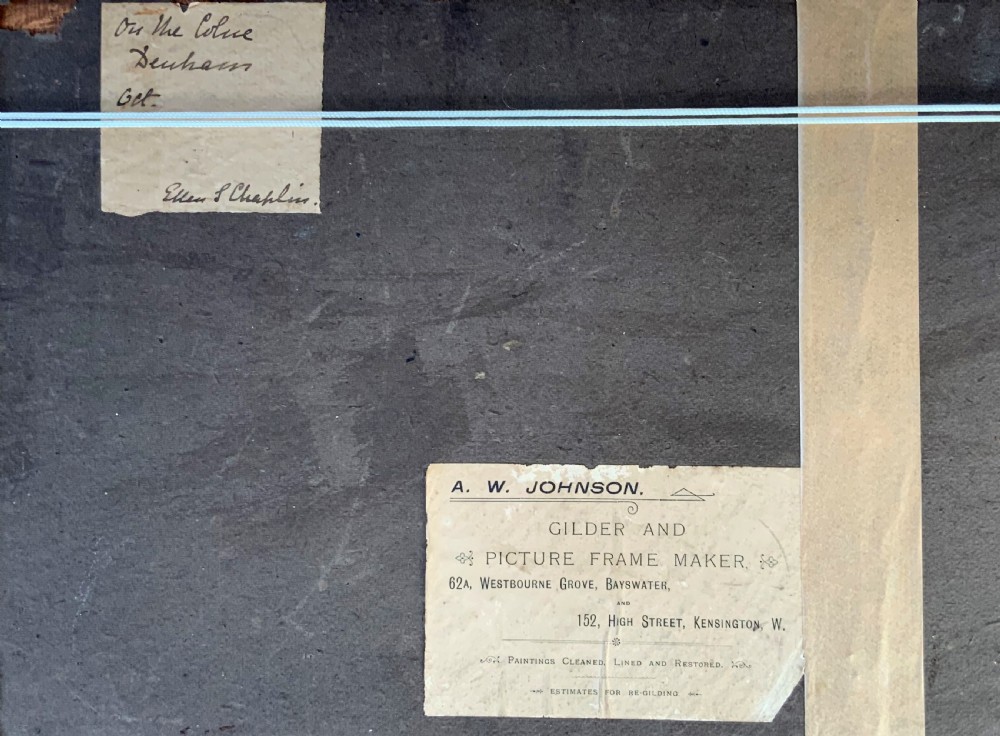 On the Colne
Denham
Oct.
Ellen S Chaplin.
A. W. JOHNSON.
GILDER AND
PICTURE FRAME MAKER,
62A, WESTBOURNE GROVE, BAYSWATER,
AND
152, HIGH STREET, KENSINGTON, W.
PAINTINGS CLEANED, LINED AND RESTORED.
ESTIMATES FOR RE-GILDING